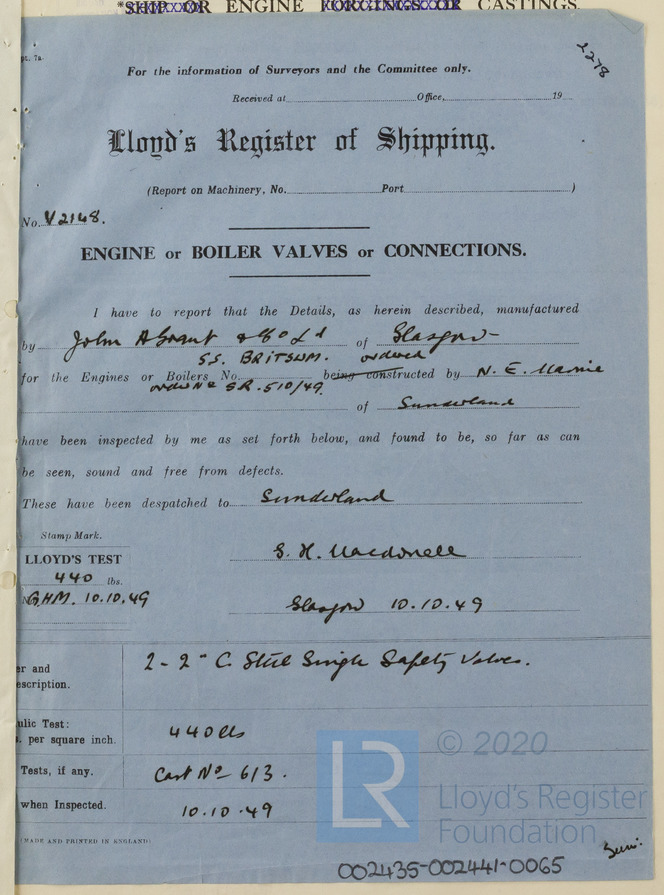 *SHIP OR ENGINE FORGINGS OR CASTINGS.
pt. 7a.
2278
For the information of Surveyors and the Committee only.
Received at Office, 19
Lloyd's Register of Shipping.
(Report on Machinery, No. Port )
No. V2148.
ENGINE or BOILER VALVES or CONNECTIONS.
I have to report that the Details, as herein described, manufactured
by John A Grant & Co Ld of Glasgow
S.S. BRITSUM. ordered
for the Engines or Boilers No. being constructed by N. E. Marine
order No SR. 510/49.
of Sunderland
have been inspected by me as set forth below, and found to be, so far as can
be seen, sound and free from defects.
These have been despatched to Sunderland
Stamp Mark.
LLOYD'S TEST
440 lbs.
G.H.M. 10.10.49
G. H. Macdonell
Glasgow 10.10.49
er and
escription.
2 - 2" C. Steel Single Safety Valves.
ulic Test:
. per square inch.
440 lbs
Tests, if any.
Cast No 613.
when Inspected.
10.10.49
(MADE AND PRINTED IN ENGLAND)
LR
© 2020
Lloyd's Register
Foundation
002435-002441-0065